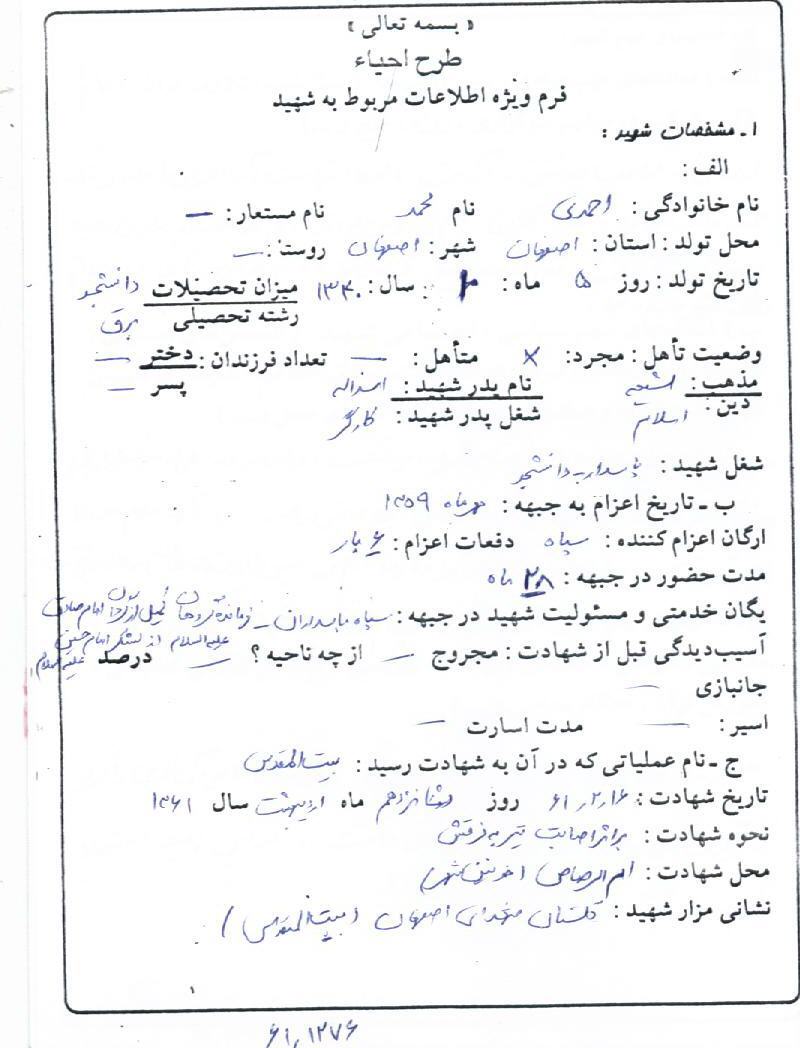 « بسمه تعالی »
طرح احیاء
فرم ویژه اطلاعات مربوط به شهید
۱ ـ مشخصات شهید :
الف :
نام خانوادگی : احمدی نام محمد نام مستعار : —
محل تولد : استان : اصفهان شهر : اصفهان روستا : —
تاریخ تولد : روز ۵ ماه : ۲ سال : ۱۳۴۰ میزان تحصیلات دانشجو
رشته تحصیلی برق
وضعیت تأهل : مجرد : × متأهل : — تعداد فرزندان : دختر —
مذهب : شیعه نام پدر شهید : اسداله پسر —
دین : اسلام شغل پدر شهید : کارگر
شغل شهید : پاسدار ـ دانشجو
ب ـ تاریخ اعزام به جبهه : مهرماه ۱۳۵۹
ارگان اعزام کننده : سپاه دفعات اعزام : ۶ بار
مدت حضور در جبهه : ۲۸ ماه
یگان خدمتی و مسئولیت شهید در جبهه : سپاه پاسداران ـ فرمانده گروهان امام صادق
علیه السلام از لشکر امام حسین علیه السلام
آسیب‌دیدگی قبل از شهادت : مجروح — از چه ناحیه ؟ — درصد
جانبازی —
اسیر : — مدت اسارت —
ج ـ نام عملیاتی که در آن به شهادت رسید : بیت المقدس
تاریخ شهادت : ۶۱/۲/۱۶ روز شانزدهم ماه اردیبهشت سال ۱۳۶۱
نحوه شهادت : براثر اصابت تیر به فرقش
محل شهادت : ام الرصاص (خرمشهر)
نشانی مزار شهید : گلستان شهدای اصفهان (بیت المقدس)
۱
۶۱,۱۲۷۶